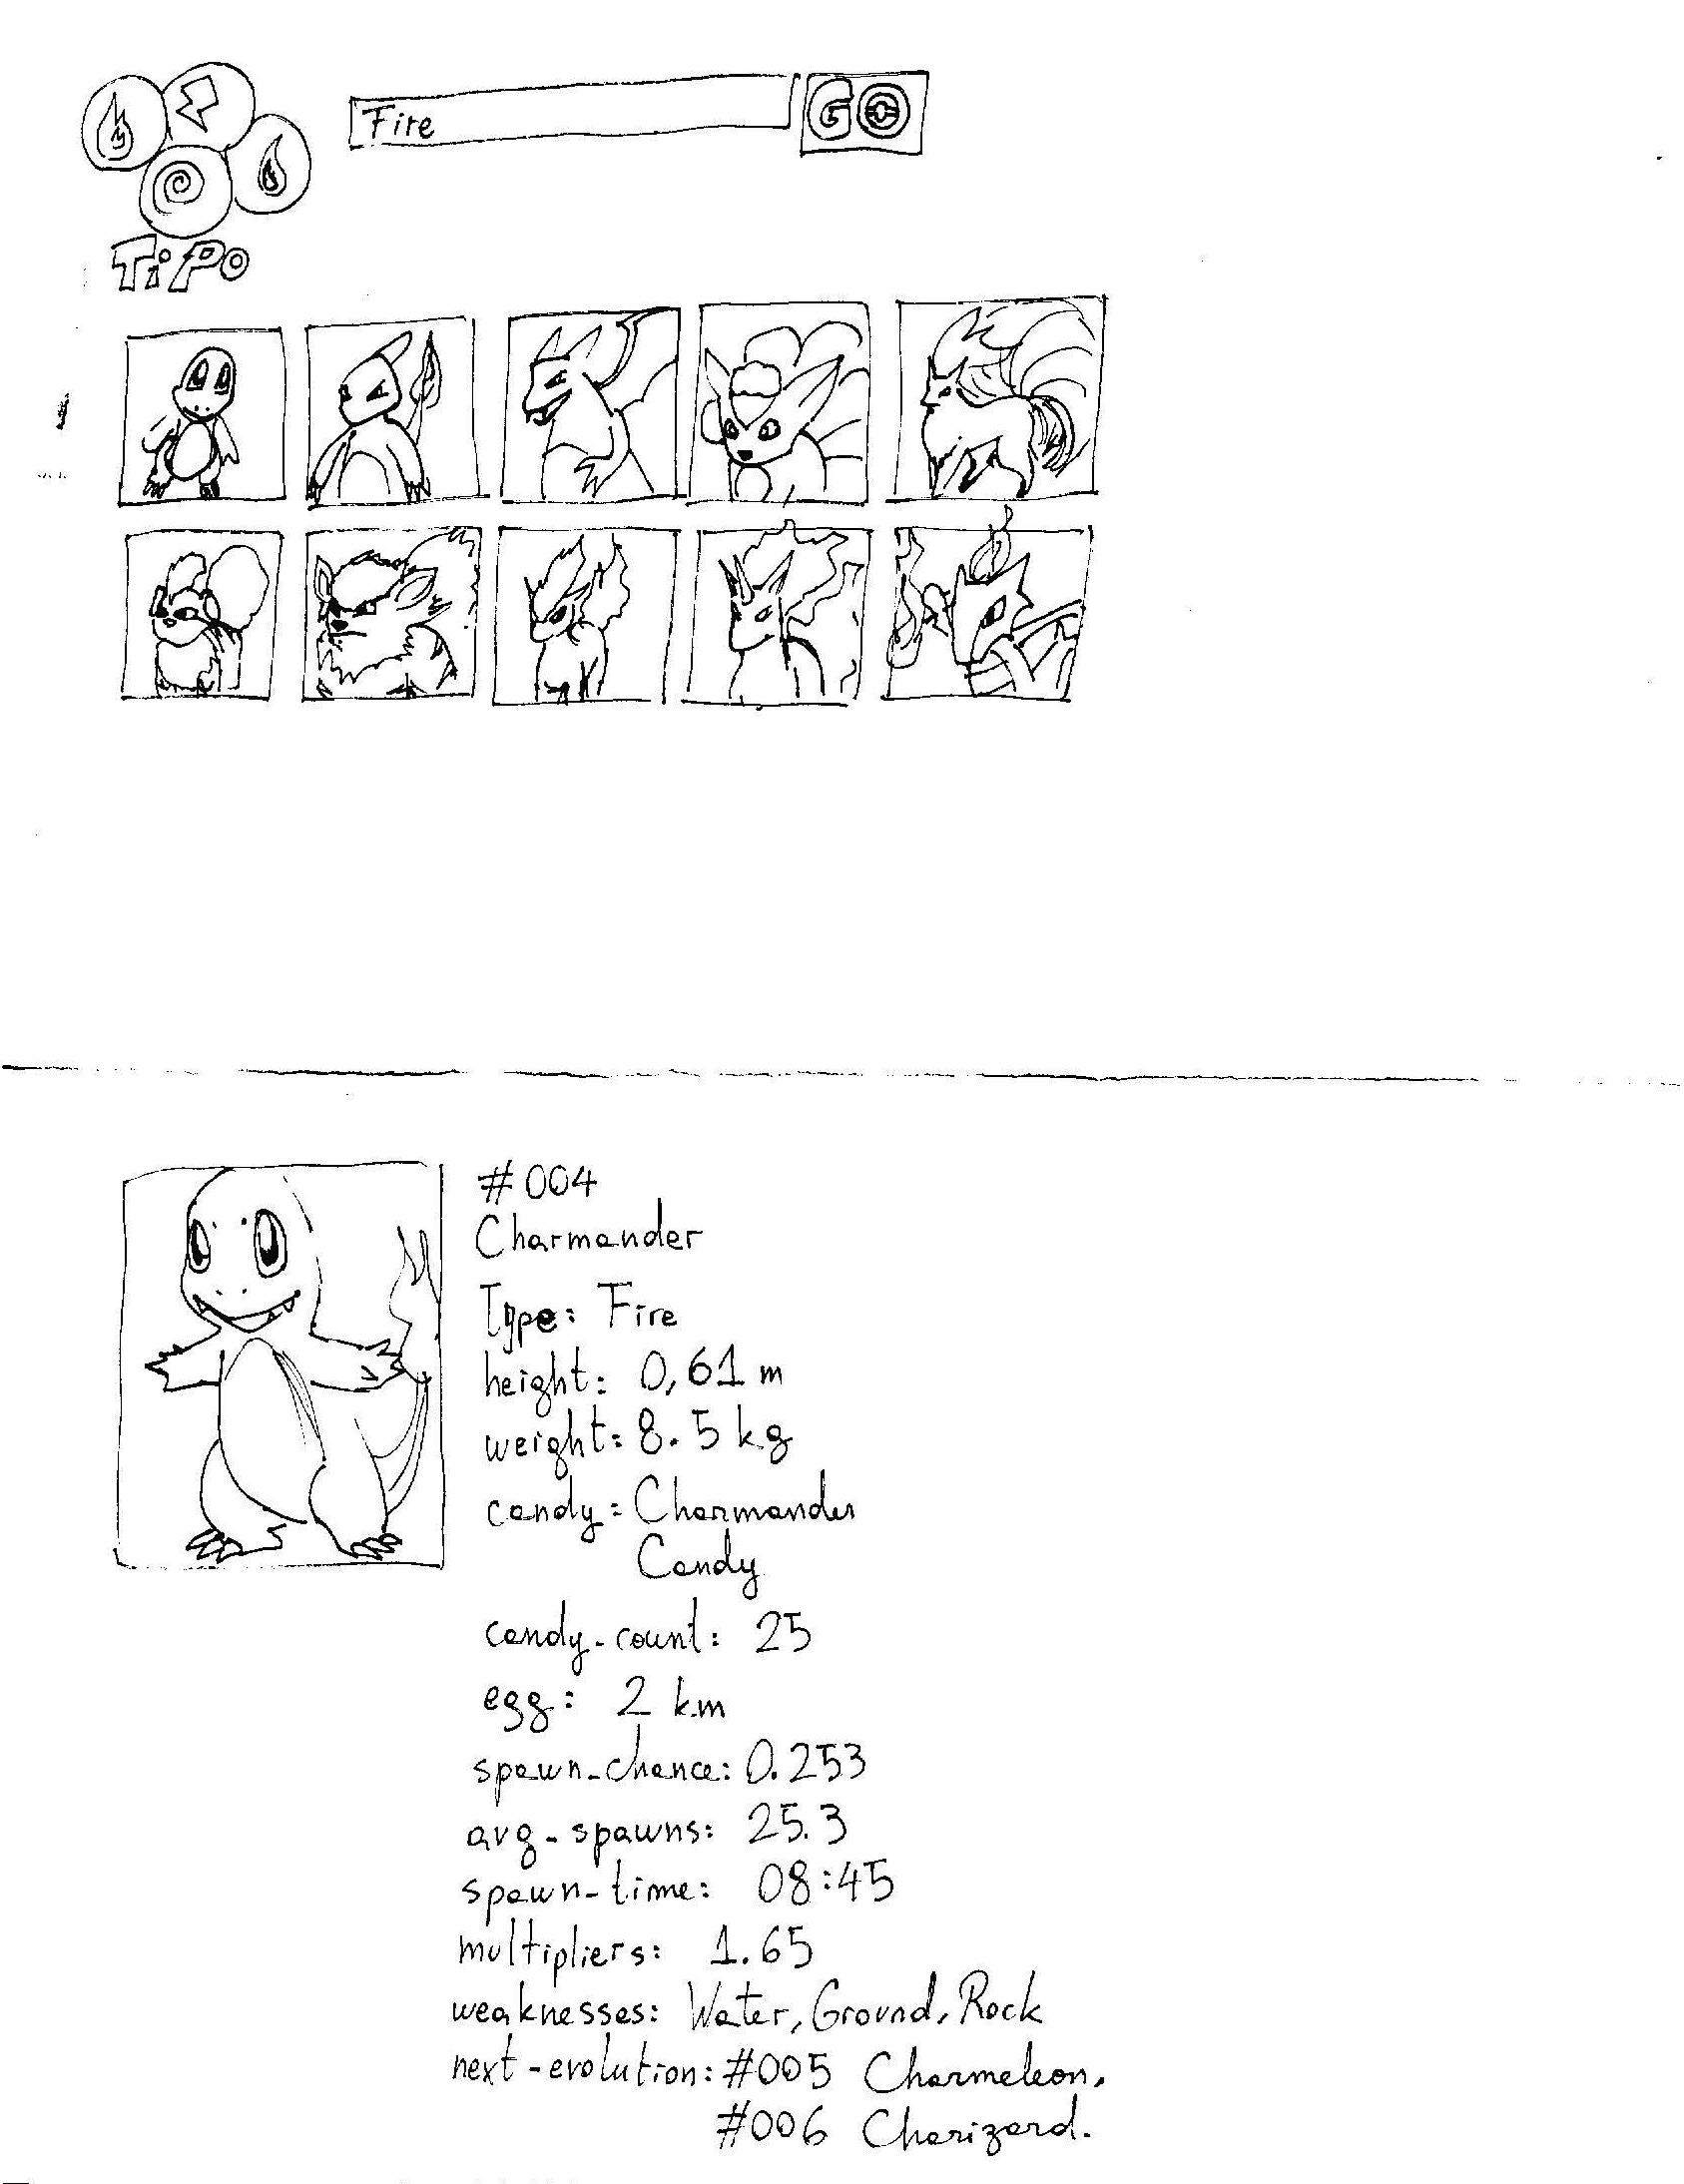 Fire
GO
TiPo
#004
Charmander
Type: Fire
height: 0,61 m
weight: 8.5 kg
candy: Charmander
Candy
candy-count: 25
egg: 2 km
spawn-chance: 0.253
avg-spawns: 25.3
spawn-time: 08:45
multipliers: 1.65
weaknesses: Water, Ground, Rock
next-evolution: #005 Charmeleon,
#006 Charizard.